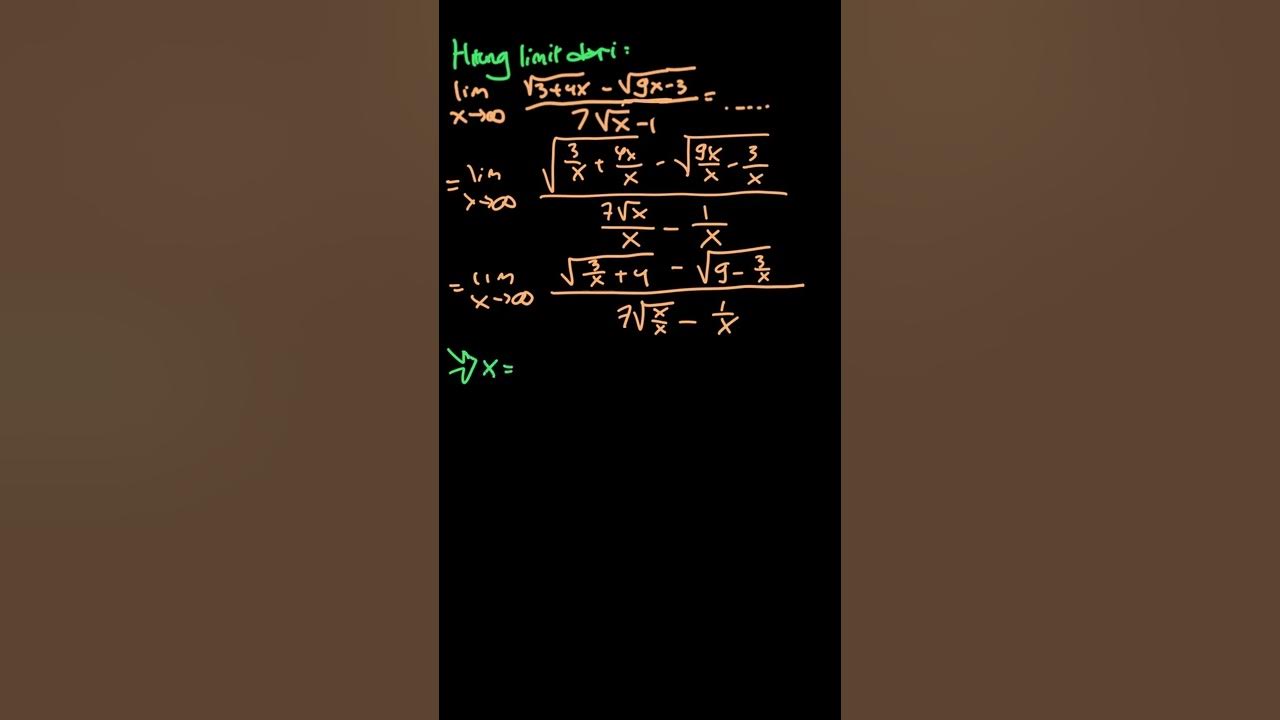 Hitung limit dari :
lim x→∞ (√(3+4x) - √(9x-3)) / (7√x - 1) = ......
= lim x→∞ (√(3/x + 4x/x) - √(9x/x - 3/x)) / (7√x/x - 1/x)
= lim x→∞ (√(3/x + 4) - √(9 - 3/x)) / (7√(x/x) - 1/x)
⇒ x =